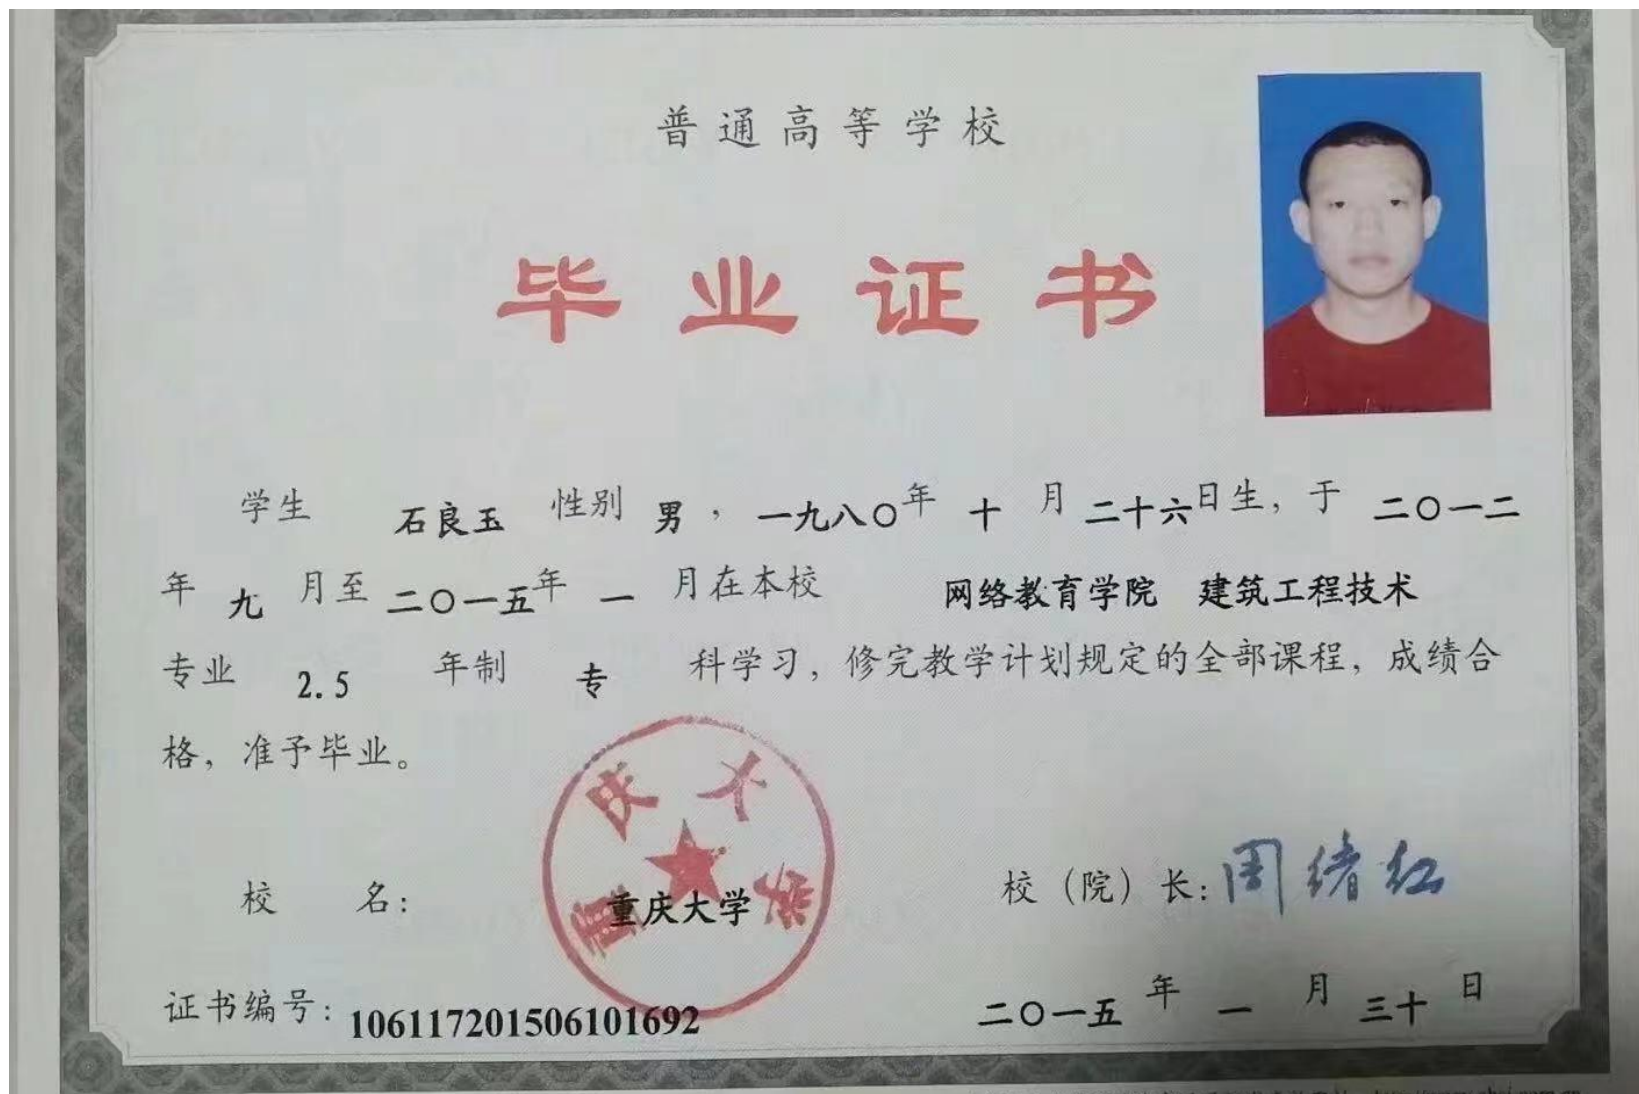 普通高等学校
毕业证书
学生 石良玉 性别 男，一九八〇年 十 月 二十六日生，于 二〇一二
年 九 月至 二〇一五年 一 月在本校 网络教育学院 建筑工程技术
专业 2.5 年制 专 科学习，修完教学计划规定的全部课程，成绩合
格，准予毕业。
重庆大学
校 名： 重庆大学 校（院）长：周绪红
证书编号：106117201506101692 二〇一五 年 一 月 三十 日